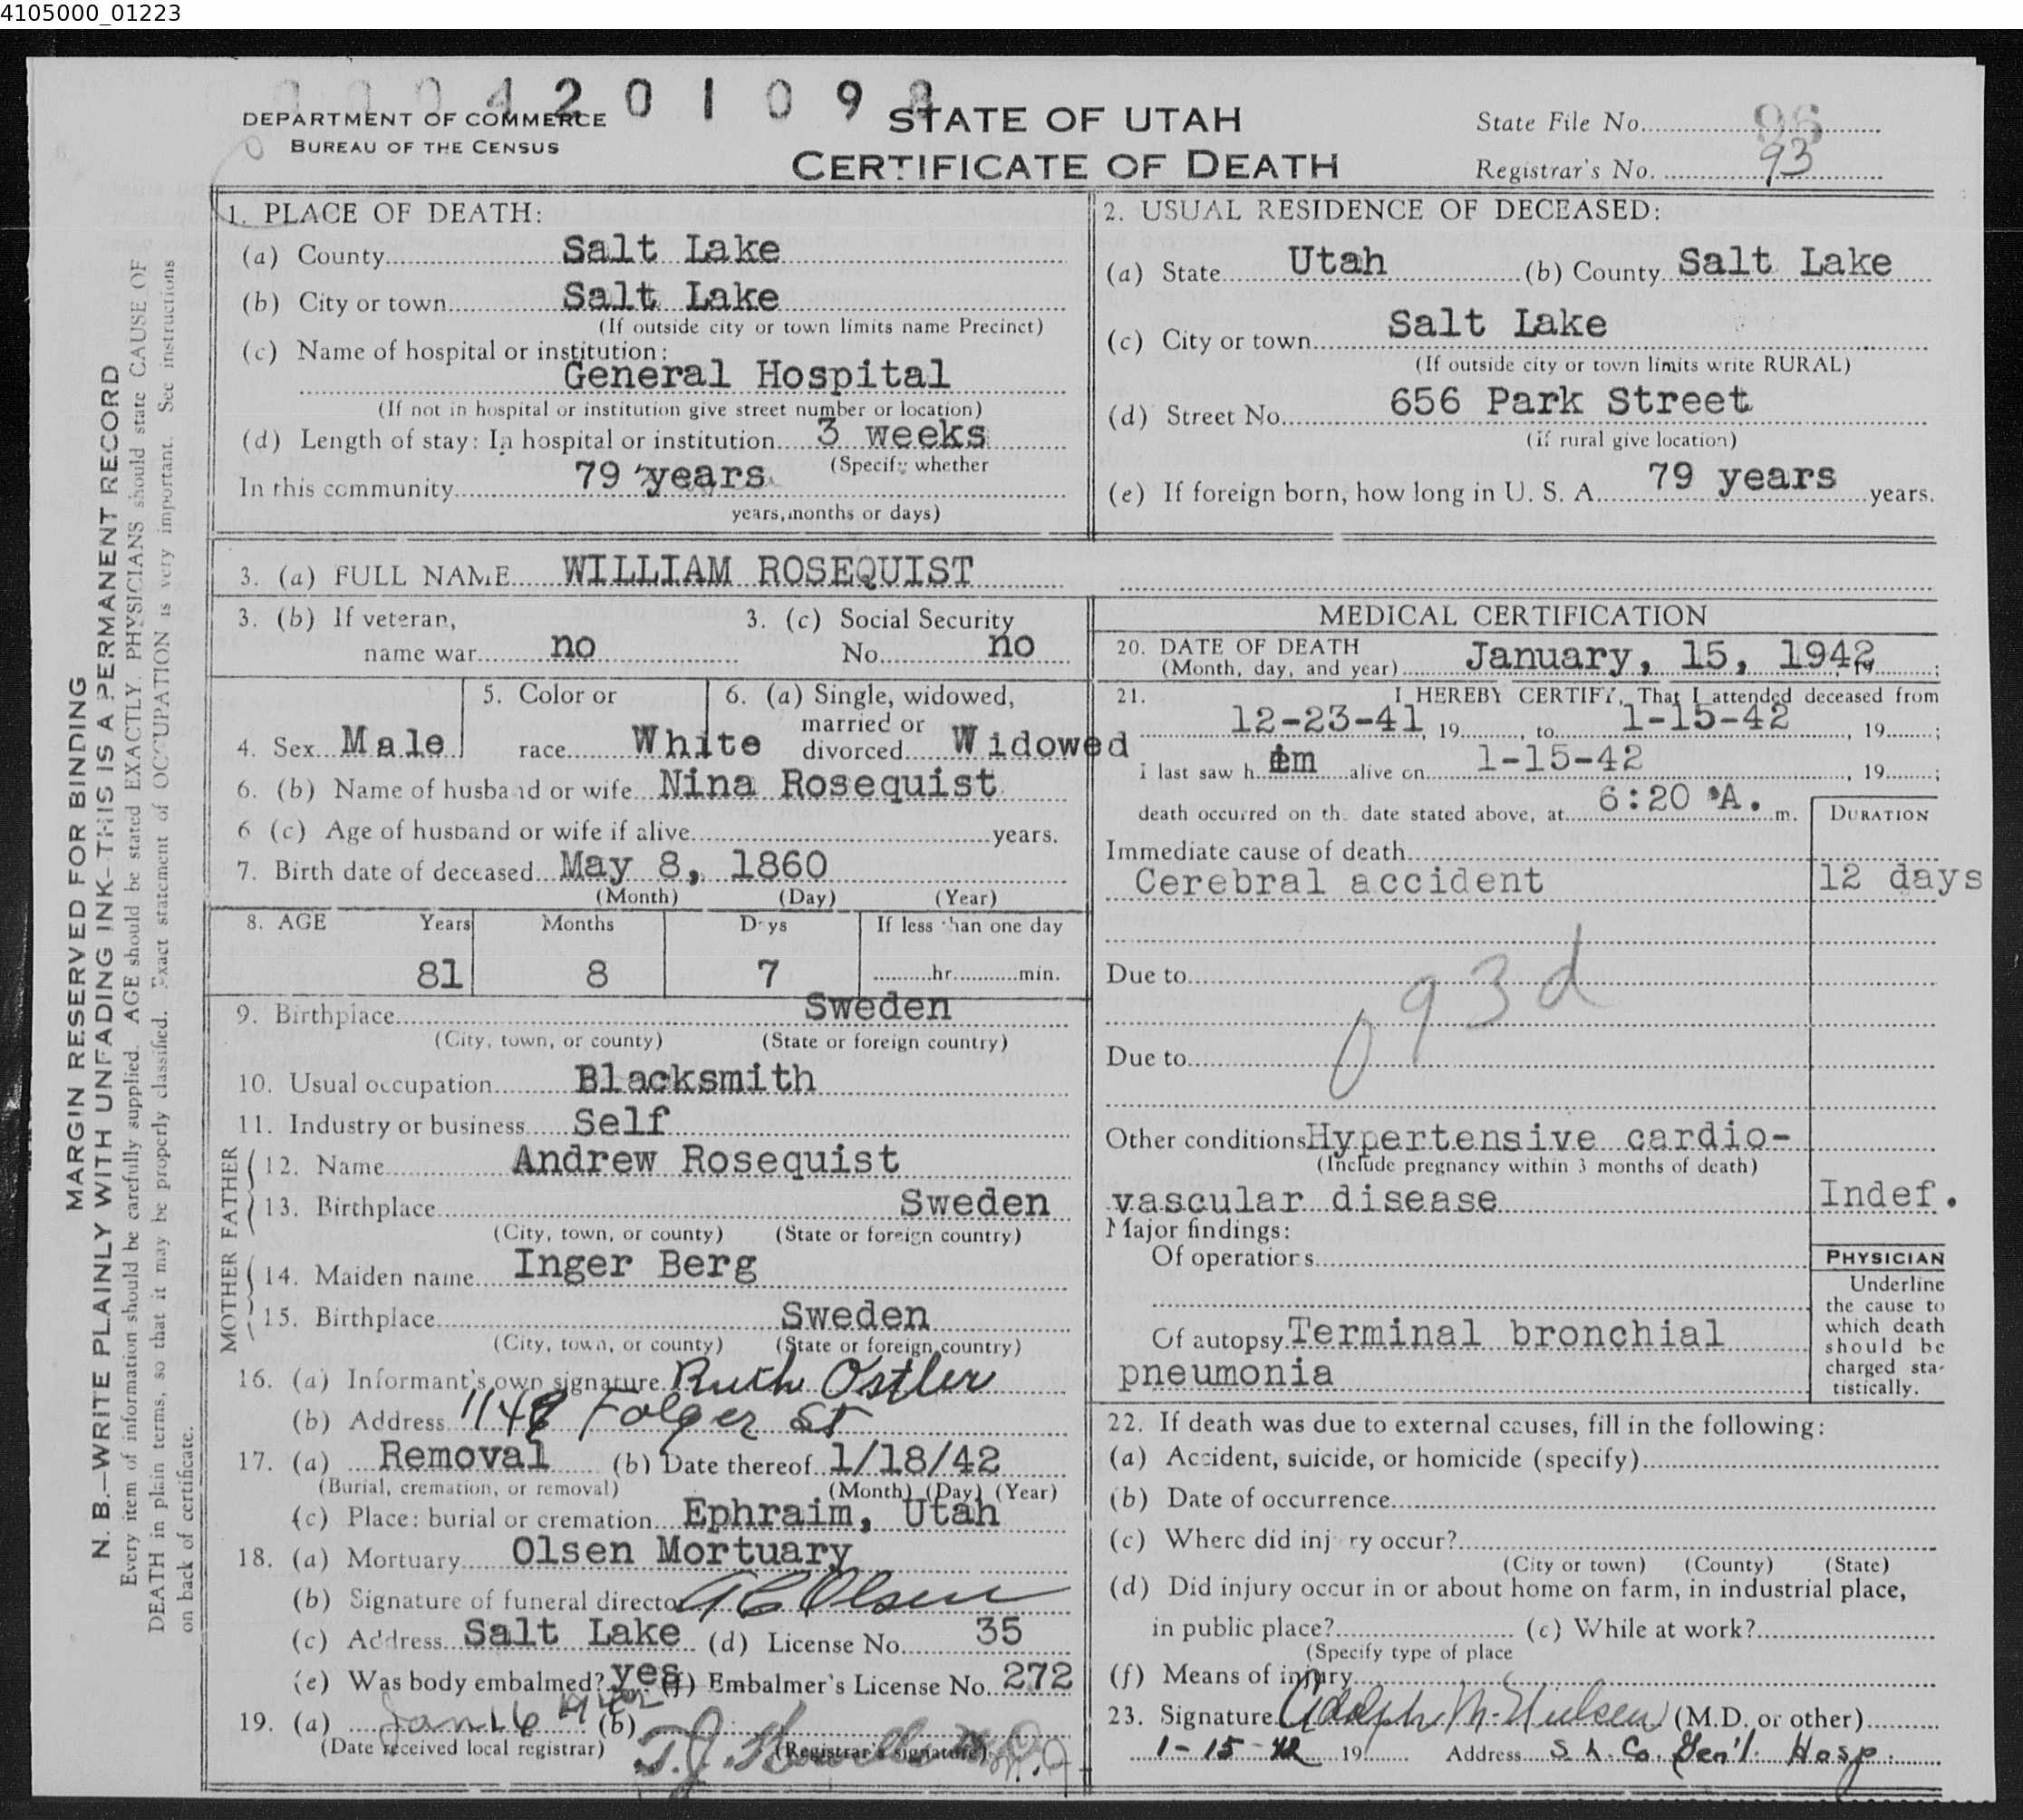 4105000_01223
4201098
DEPARTMENT OF COMMERCE
BUREAU OF THE CENSUS
STATE OF UTAH
CERTIFICATE OF DEATH
State File No. 96
Registrar's No. 93
MARGIN RESERVED FOR BINDING
N. B.—WRITE PLAINLY WITH UNFADING INK—THIS IS A PERMANENT RECORD
Every item of information should be carefully supplied. AGE should be stated EXACTLY. PHYSICIANS should state CAUSE OF
DEATH in plain terms, so that it may be properly classified. Exact statement of OCCUPATION is very important. See instructions
on back of certificate.
1. PLACE OF DEATH:
(a) County Salt Lake
(b) City or town Salt Lake
(If outside city or town limits name Precinct)
(c) Name of hospital or institution:
General Hospital
(If not in hospital or institution give street number or location)
(d) Length of stay: In hospital or institution 3 weeks
(Specify whether
In this community 79 years
years, months or days)
2. USUAL RESIDENCE OF DECEASED:
(a) State Utah (b) County Salt Lake
(c) City or town Salt Lake
(If outside city or town limits write RURAL)
(d) Street No. 656 Park Street
(if rural give location)
(e) If foreign born, how long in U. S. A. 79 years years.
3. (a) FULL NAME WILLIAM ROSEQUIST
3. (b) If veteran,
name war no
3. (c) Social Security
No. no
4. Sex Male
5. Color or
race White
6. (a) Single, widowed,
married or
divorced Widowed
6. (b) Name of husband or wife Nina Rosequist
6 (c) Age of husband or wife if alive years.
7. Birth date of deceased May 8, 1860
(Month) (Day) (Year)
8. AGE Years Months Days If less than one day
81 8 7 hr. min.
9. Birthplace Sweden
(City, town, or county) (State or foreign country)
10. Usual occupation Blacksmith
11. Industry or business Self
FATHER
12. Name Andrew Rosequist
13. Birthplace Sweden
(City, town, or county) (State or foreign country)
MOTHER
14. Maiden name Inger Berg
15. Birthplace Sweden
(City, town, or county) (State or foreign country)
16. (a) Informant's own signature Ruth Ostler
(b) Address Folger St
17. (a) Removal (b) Date thereof 1/18/42
(Burial, cremation, or removal) (Month) (Day) (Year)
(c) Place: burial or cremation Ephraim, Utah
18. (a) Mortuary Olsen Mortuary
(b) Signature of funeral director A C Olsen
(c) Address Salt Lake (d) License No. 35
(e) Was body embalmed? yes (f) Embalmer's License No. 272
19. (a) Jan 16 1942 (b) T. J. Howells
(Date received local registrar) (Registrar's signature)
MEDICAL CERTIFICATION
20. DATE OF DEATH
(Month, day, and year) January, 15, 1942;
21. I HEREBY CERTIFY, That I attended deceased from
12-23-41, 19 , to 1-15-42 , 19 ;
I last saw h im alive on 1-15-42 , 19 ;
death occurred on the date stated above, at 6:20 A. m.
DURATION
Immediate cause of death
Cerebral accident 12 days
Due to
093d
Due to
Other conditions Hypertensive cardio-
(Include pregnancy within 3 months of death)
vascular disease Indef.
Major findings:
Of operations
Of autopsy Terminal bronchial
pneumonia
PHYSICIAN
Underline
the cause to
which death
should be
charged sta-
tistically.
22. If death was due to external causes, fill in the following:
(a) Accident, suicide, or homicide (specify)
(b) Date of occurrence
(c) Where did injury occur?
(City or town) (County) (State)
(d) Did injury occur in or about home on farm, in industrial place,
in public place? (e) While at work?
(Specify type of place
(f) Means of injury
23. Signature Adolph M. Nielsen (M.D. or other)
1-15-42 19 Address S. L. Co. Gen'l. Hosp.